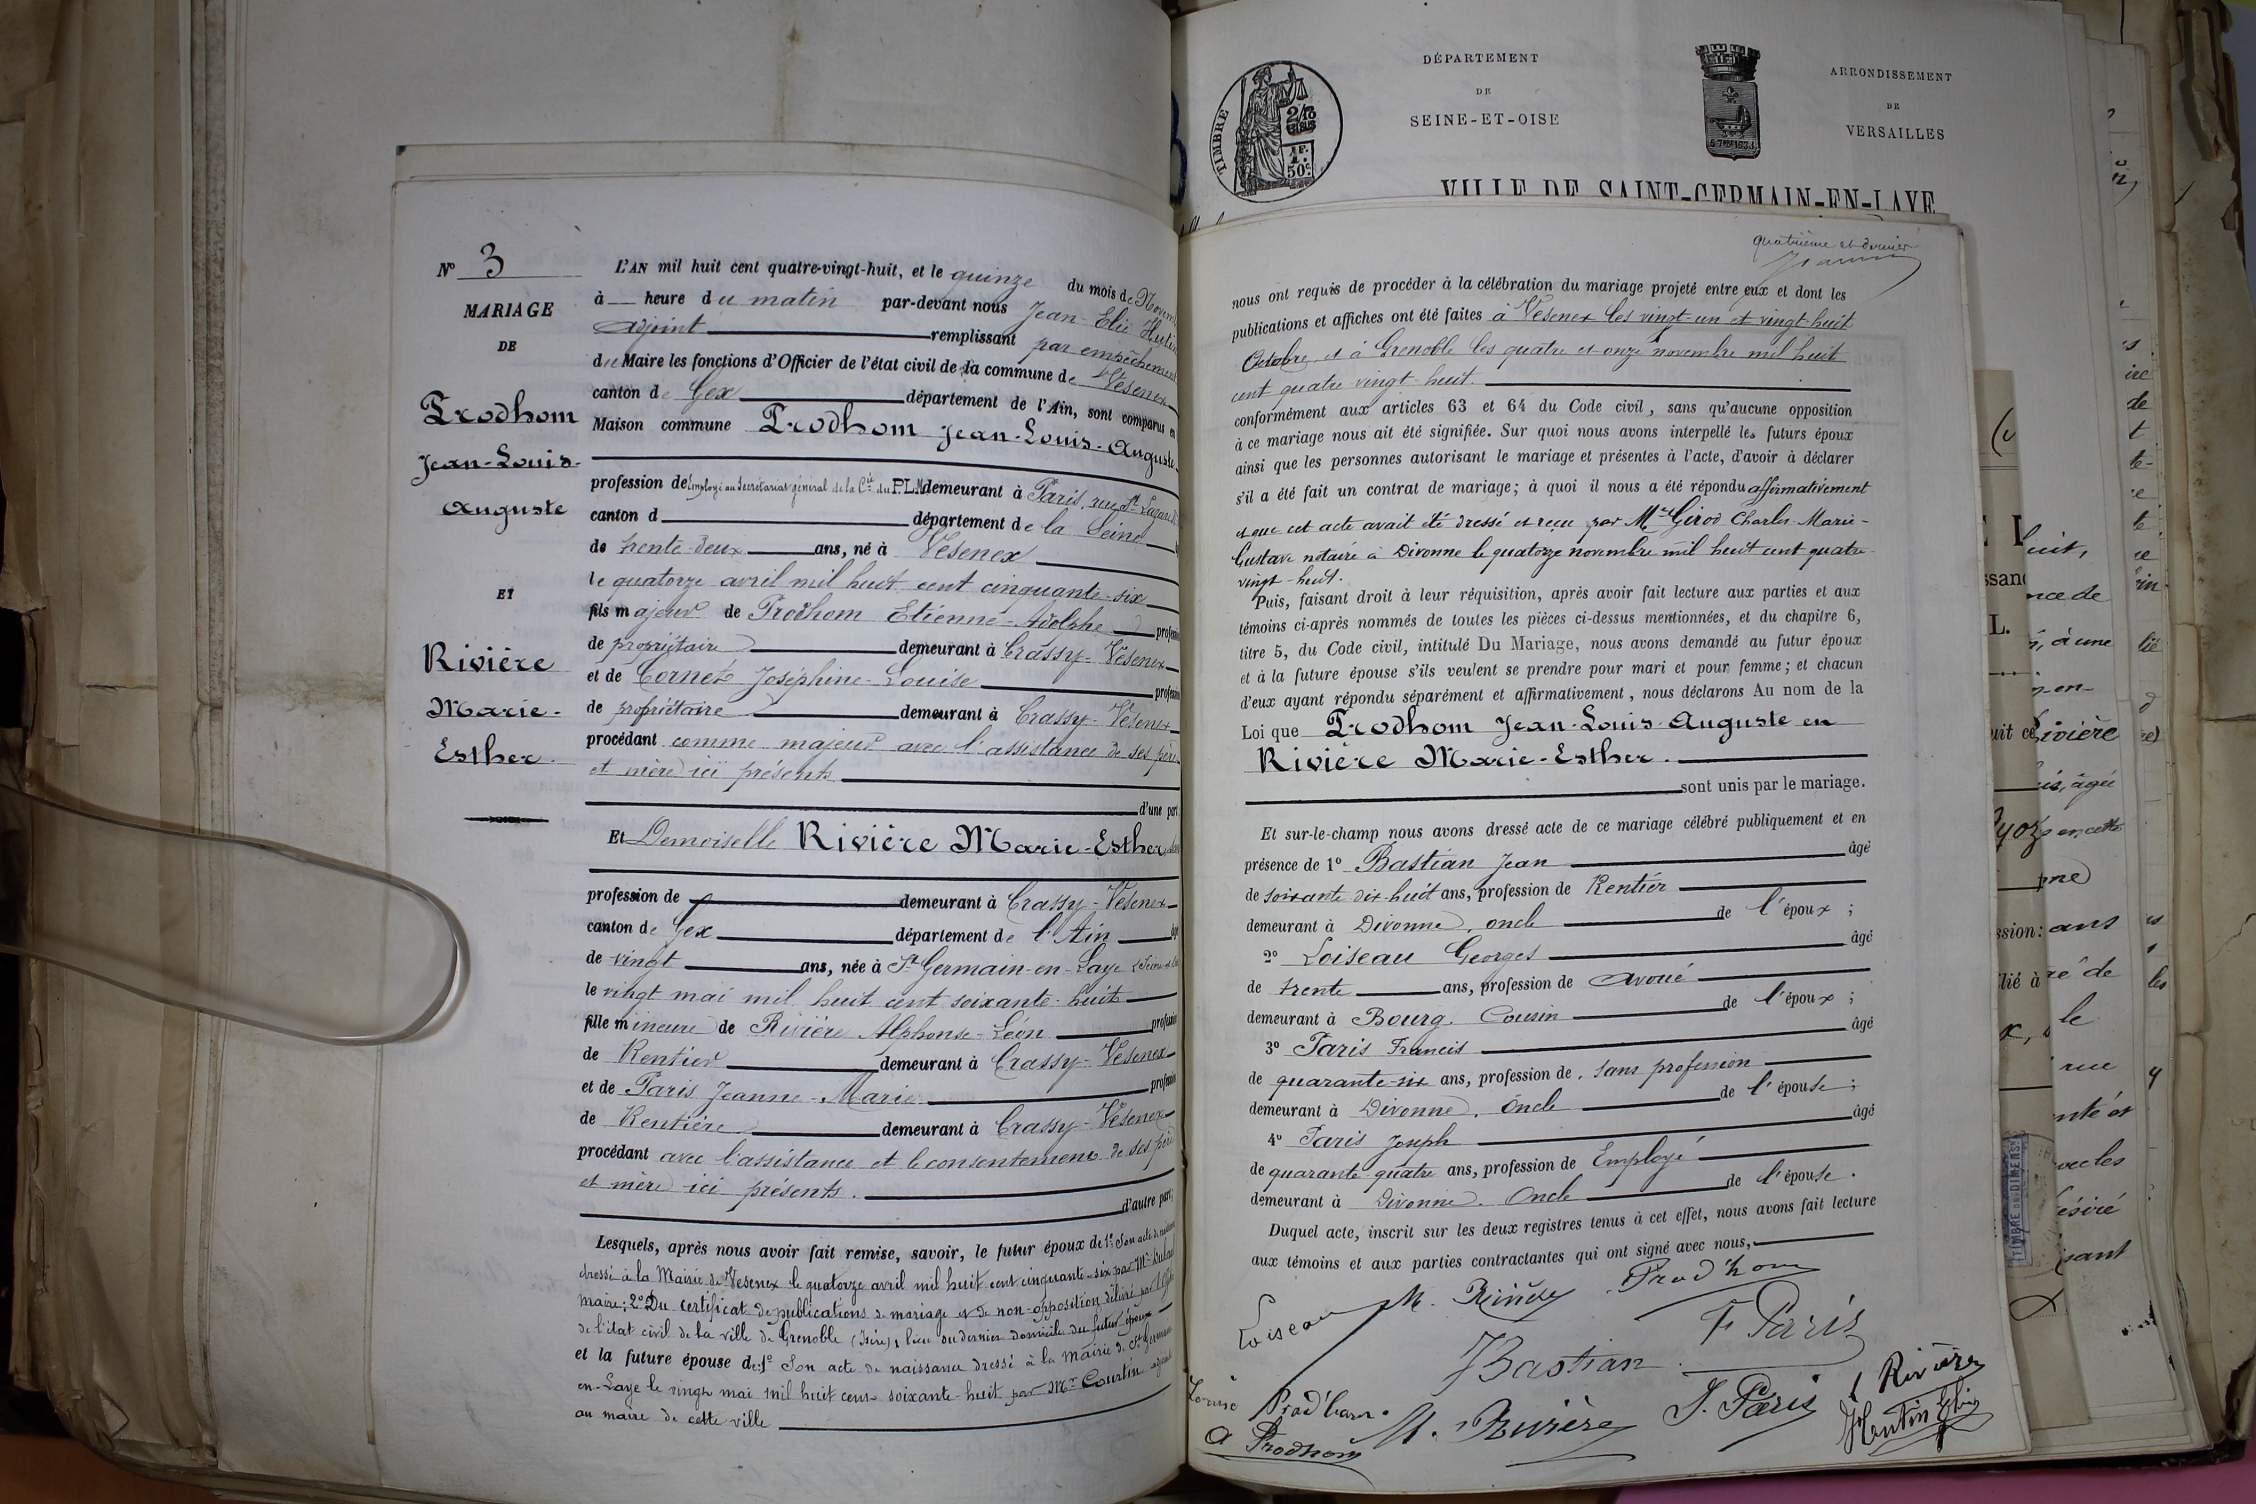 N° 3
MARIAGE
DE
Prodhom
Jean-Louis-
Auguste
ET
Rivière
Marie-
Esther.
L'AN mil huit cent quatre-vingt-huit, et le quinze du mois de Novem
à — heure du matin par-devant nous Jean-Elie Hutin
adjoint remplissant par empêchement
du Maire les fonctions d'Officier de l'état civil de la commune de Vesenex
canton de Gex département de l'Ain, sont comparus en
Maison commune Prodhom Jean-Louis-Auguste
profession de Employé au Secrétariat général de la Cie du P.L.M demeurant à Paris, rue St Lazare
canton d département de la Seine
de trente-deux ans, né à Vesenex
le quatorze avril mil huit cent cinquante-six
fils majeur de Prodhom Etienne-Adolphe profession
de propriétaire demeurant à Crassy-Vesenex
et de Cornet Joséphine-Louise profession
de propriétaire demeurant à Crassy-Vesenex
procédant comme majeur avec l'assistance de ses père
et mère ici présents
d'une part
Et Demoiselle Rivière Marie-Esther
profession de demeurant à Crassy-Vesenex
canton de Gex département de l'Ain âgé
de vingt ans, née à St Germain-en-Laye
le vingt mai mil huit cent soixante-huit
fille mineure de Rivière Alphonse-Léon profession
de Rentier demeurant à Crassy-Vesenex
et de Paris Jeanne-Marie profession
de Rentière demeurant à Crassy-Vesenex
procédant avec l'assistance et le consentement de ses père
et mère ici présents.
d'autre part;
Lesquels, après nous avoir fait remise, savoir, le futur époux de 1° Son acte de naissance
dressé à la Mairie de Vesenex le quatorze avril mil huit cent cinquante-six par Mr
maire; 2° Du certificat de publications de mariage et de non-opposition délivré par
de l'état civil de la ville de Grenoble (Isère), lieu du dernier domicile du futur époux
et la future épouse de: 1° Son acte de naissance dressé à la Mairie de St Germain
en-Laye le vingt mai mil huit cent soixante-huit par Mr Courtin adjoint
au maire de cette ville
TIMBRE
2/10
EN SUS
AF.
1.
50c.
DÉPARTEMENT
DE
SEINE-ET-OISE
ARRONDISSEMENT
DE
VERSAILLES
VILLE DE SAINT-GERMAIN-EN-LAYE
quatrième et dernier
nous ont requis de procéder à la célébration du mariage projeté entre eux et dont les
publications et affiches ont été faites à Vesenex les vingt-un et vingt-huit
Octobre et à Grenoble les quatre et onze novembre mil huit
cent quatre vingt-huit.
conformément aux articles 63 et 64 du Code civil, sans qu'aucune opposition
à ce mariage nous ait été signifiée. Sur quoi nous avons interpellé les futurs époux
ainsi que les personnes autorisant le mariage et présentes à l'acte, d'avoir à déclarer
s'il a été fait un contrat de mariage; à quoi il nous a été répondu affirmativement
et que cet acte avait été dressé et reçu par Mtre Girod Charles-Marie-
Gustave notaire à Divonne le quatorze novembre mil huit cent quatre-
vingt-huit.
Puis, faisant droit à leur réquisition, après avoir fait lecture aux parties et aux
témoins ci-après nommés de toutes les pièces ci-dessus mentionnées, et du chapitre 6,
titre 5, du Code civil, intitulé Du Mariage, nous avons demandé au futur époux
et à la future épouse s'ils veulent se prendre pour mari et pour femme; et chacun
d'eux ayant répondu séparément et affirmativement, nous déclarons Au nom de la
Loi que Prodhom Jean-Louis-Auguste en
Rivière Marie-Esther.
sont unis par le mariage.
Et sur-le-champ nous avons dressé acte de ce mariage célébré publiquement et en
présence de 1° Bastian Jean âgé
de soixante dix huit ans, profession de Rentier
demeurant à Divonne, oncle de l'époux;
2° Loiseau Georges âgé
de trente ans, profession de avoué
demeurant à Bourg. Cousin de l'époux;
3° Paris Francis âgé
de quarante-six ans, profession de sans profession
demeurant à Divonne. Oncle de l'épouse;
4° Paris Joseph âgé
de quarante-quatre ans, profession de Employé
demeurant à Divonne. Oncle de l'épouse.
Duquel acte, inscrit sur les deux registres tenus à cet effet, nous avons fait lecture
aux témoins et aux parties contractantes qui ont signé avec nous,
Loiseau M. Rivière Prod'hom
Bastian F Paris
Louise Prod'hom M. Rivière J. Paris Rivière
a Prodhom Hutin Elie